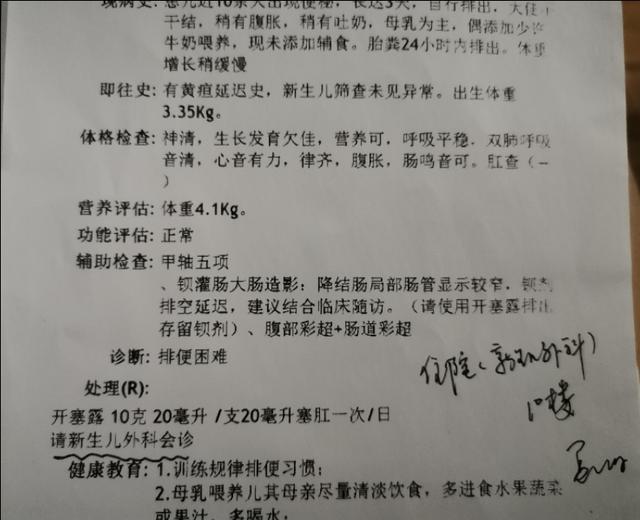 现病史: 患儿近10余天出现便秘, 长达3天, 自行排出, 大便
干结, 稍有腹胀, 稍有吐奶, 母乳为主, 偶添加少许
牛奶喂养, 现未添加辅食。胎粪24小时内排出。体重
增长稍缓慢
即往史: 有黄疸延迟史, 新生儿筛查未见异常。出生体重
3.35Kg。
体格检查: 神清, 生长发育欠佳, 营养可, 呼吸平稳, 双肺呼吸
音清, 心音有力, 律齐, 腹胀, 肠鸣音可。肛查 (-
)
营养评估: 体重4.1Kg。
功能评估: 正常
辅助检查: 甲轴五项
、钡灌肠大肠造影: 降结肠局部肠管显示较窄, 钡剂
排空延迟, 建议结合临床随访。(请使用开塞露排出
存留钡剂)、腹部彩超+肠道彩超
诊断: 排便困难
住院(新生儿外科)
处理(R):
10楼
开塞露 10克 20毫升 /支20毫升塞肛一次/日
请新生儿外科会诊
健康教育: 1.训练规律排便习惯;
2.母乳喂养儿其母亲尽量清淡饮食, 多进食水果蔬菜
或果汁, 多喝水,